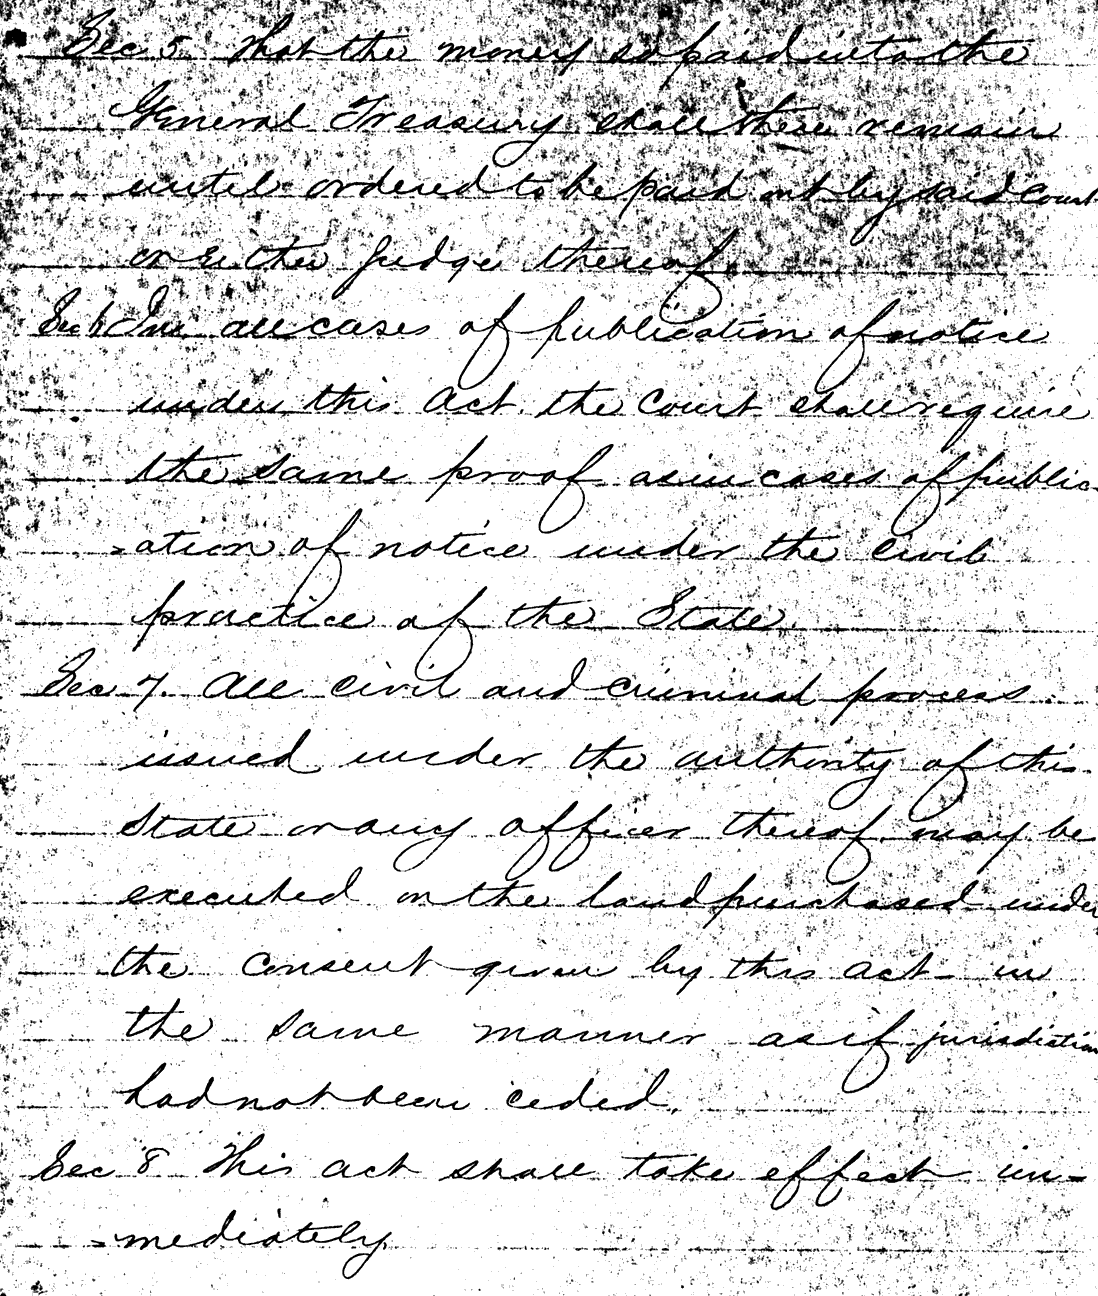 Sec 5. That the money so paid into the
General Treasury shall there remain
until ordered to be paid out by said Court
or either Judge thereof.
Sec 6 In all cases of publication of notice
under this Act, the Court shall require
the same proof as in cases of public-
=ation of notice under the civil
practice of the State.
Sec 7. All civil and criminal process
issued under the authority of this
State or any officer thereof may be
executed on the land purchased under
the consent given by this act in
the same manner as if jurisdiction
had not been ceded.
Sec 8 This act shall take effect im-
=mediately.